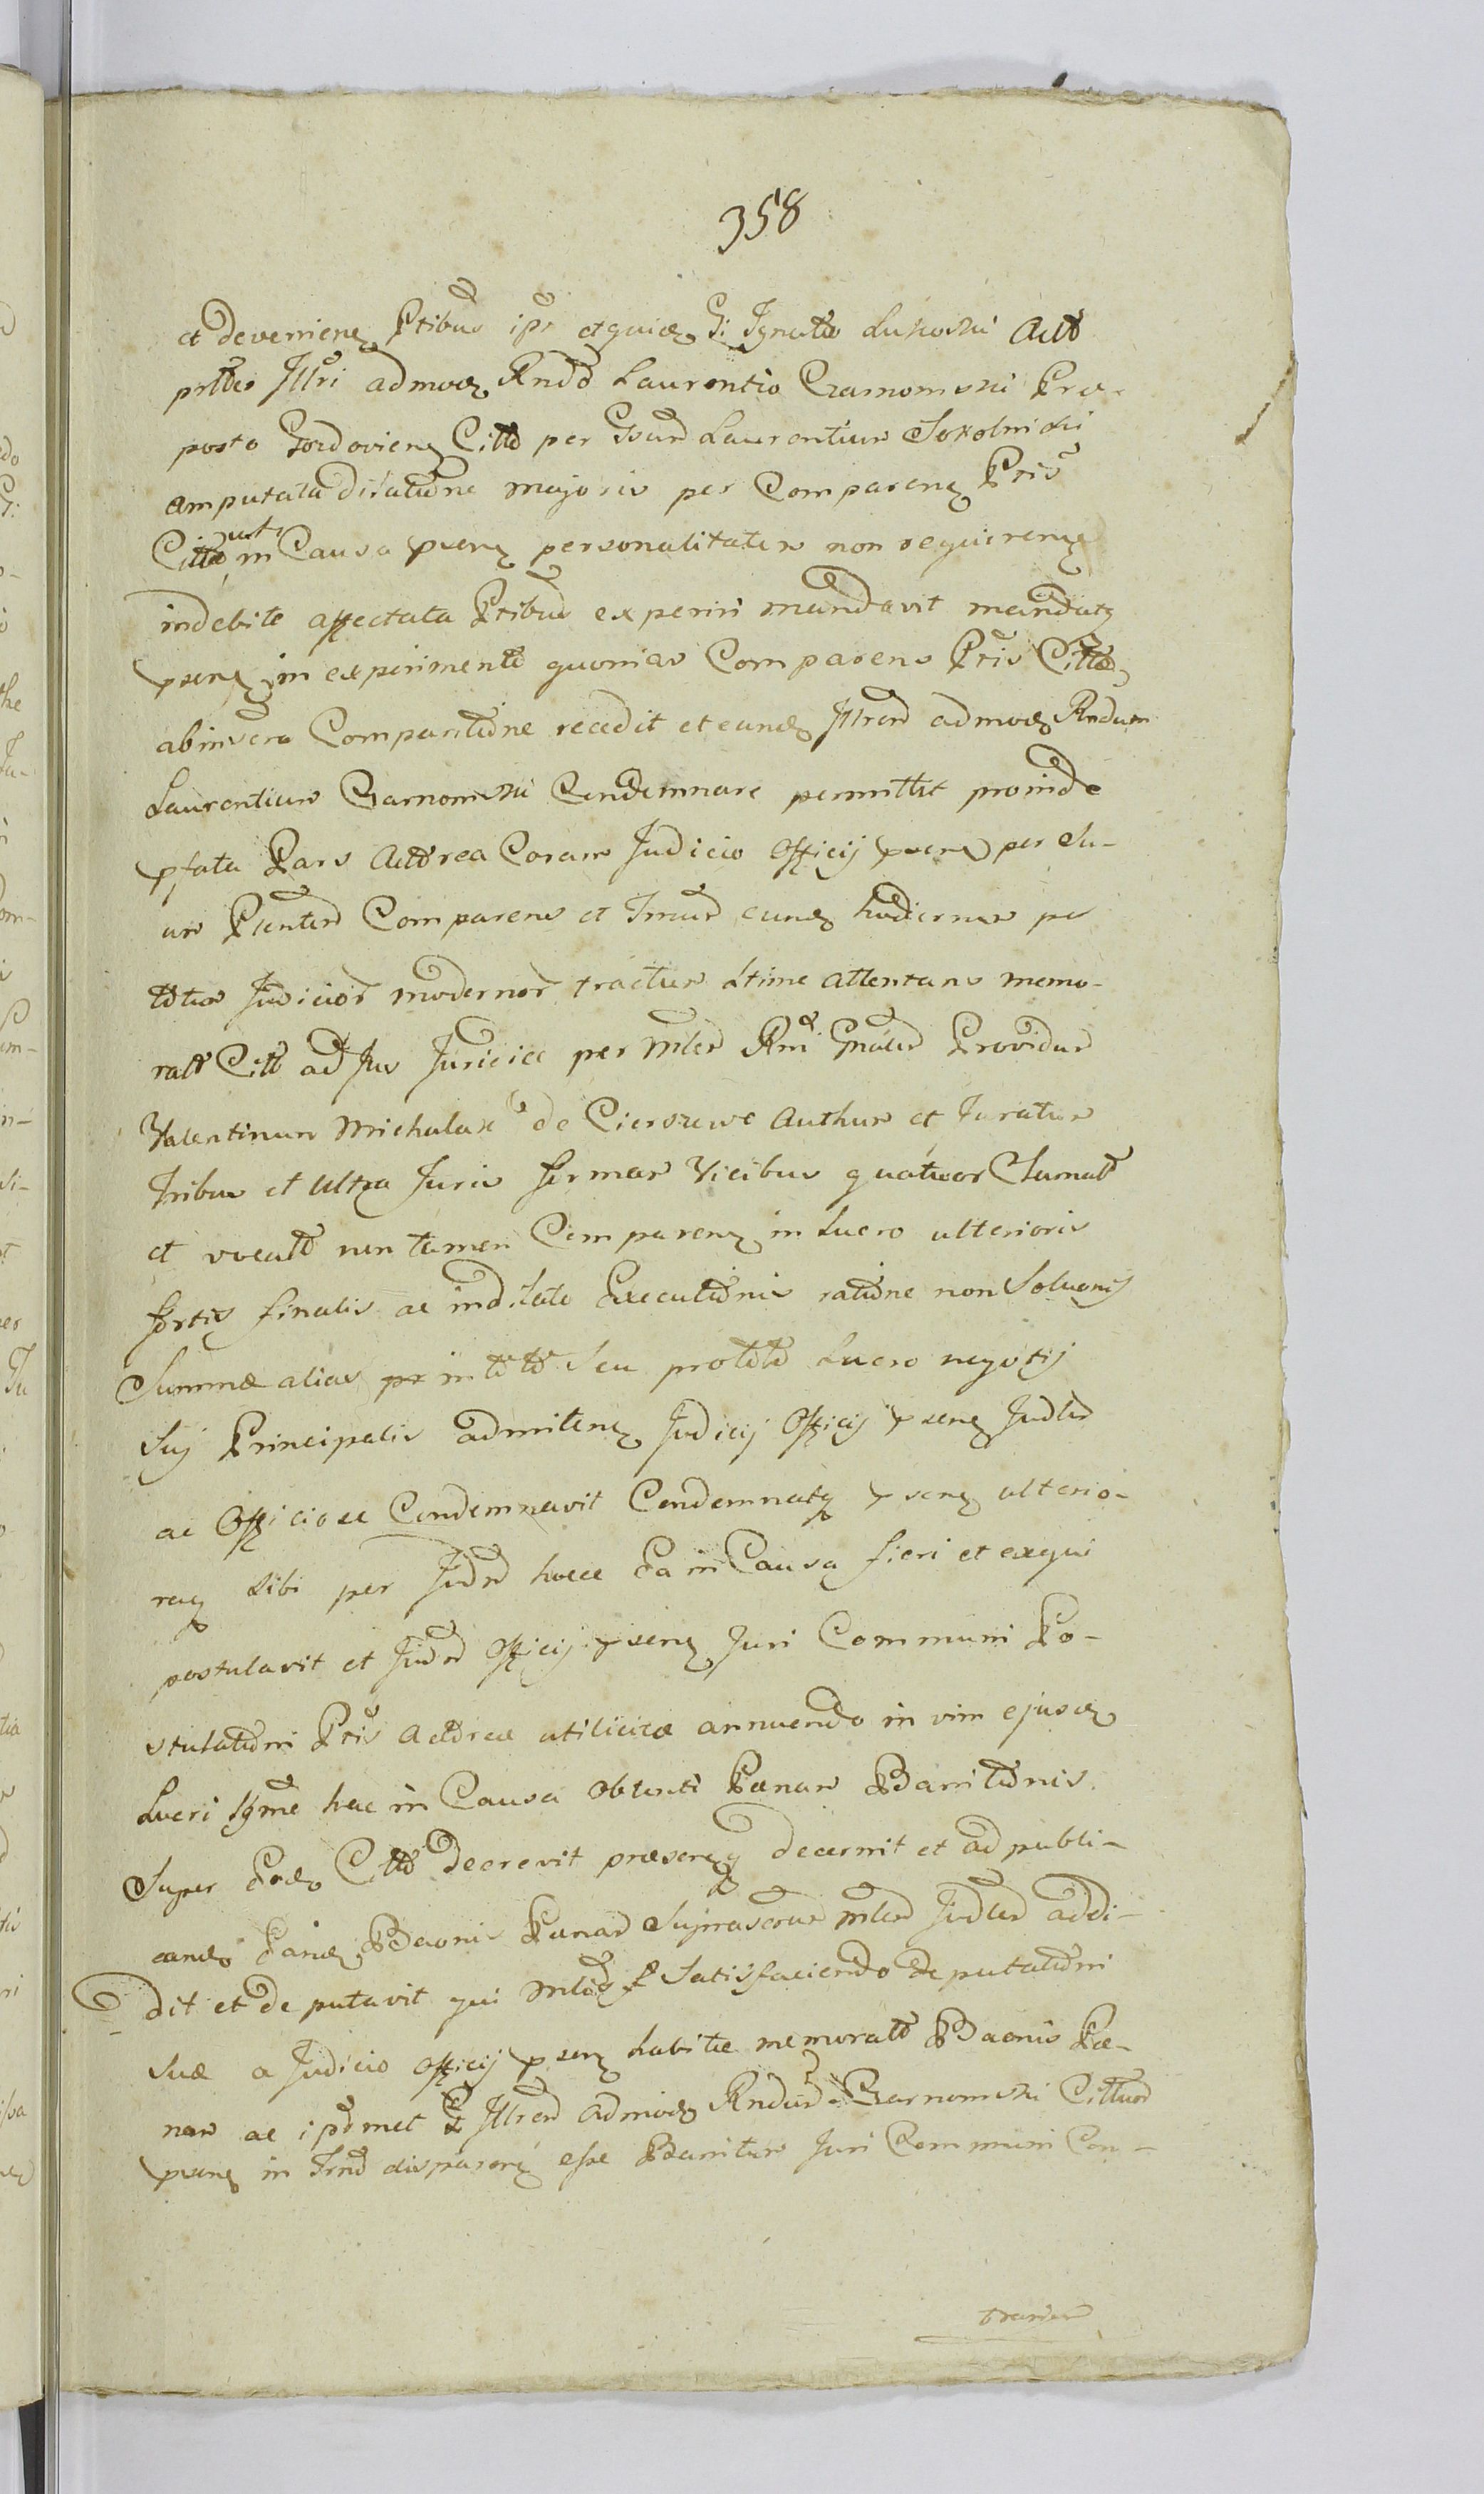 358
et devenien Ptibus ips Ignatio Lukoski Act
Illri admod Rndo Laurentio Czarnomski Pre-
posto Gordovien Citto per Gsum Laurentium Sokolnicki
amputata dilatione majoris per Comparen Ptis
Citto in Causa psen personalitatem non requiren
indebite affectata Ptibus experiri mandavit mandatq
psen in experimento quoniam Comparens Ptis Citta
abinsera Comparitione recedit et eund Illrem admod Rndum
Laurentium Czarnomski Condemnare permittit proinde
pfata Pars Actorea Coram Judicio Officij psen per Su-
um Plenten Comparens et Tmum eund hodiernum pe
Judicior modernor tractum Ltime attentans memo-
ratt Citt ad Jus Juridice per Mlem Rni Gnalem Providum
Valentinum Michalak de Cierszewo Authum et Juratum
Tribus et ultra Juris formam Vicibus quatuor Clamatt
et vocatt non tamen Comparen in Lucro ulterioris
fortis finalis ac indilate Executionis ratione non Solvenij
Summæ alias in toto Seu protto Lucro negotij
Suj Principalis admiten Judicij Officij psen Judter
ac Officiose Condemnavit Condemnatq psen ulterio-
raq Sibi per Judm hocce Ea in Causa fieri et exequi
postulavit et Judm Officij psen Juri Communi Po-
stulationi Ptis Actoreæ utiliter annuendo in vim ejusd
Lucri hac in Causa Obtenti Pænam Bannitionis
Super Eod Citto decrevit præsenq decernit et ad publi-
cand Eand Baonis Pænam Suprascrum Mlem Judlem addi-
dit et deputavit qui Satisfaciendo deputationi
Suæ a Judicio Officij psen habitæ memoratt Baonis Pæ-
nam ac ipsmet Illrem admod Rndum Czarnomski Cittum
psen in Tmo disparen esse Bannitum Juri Communi Con-